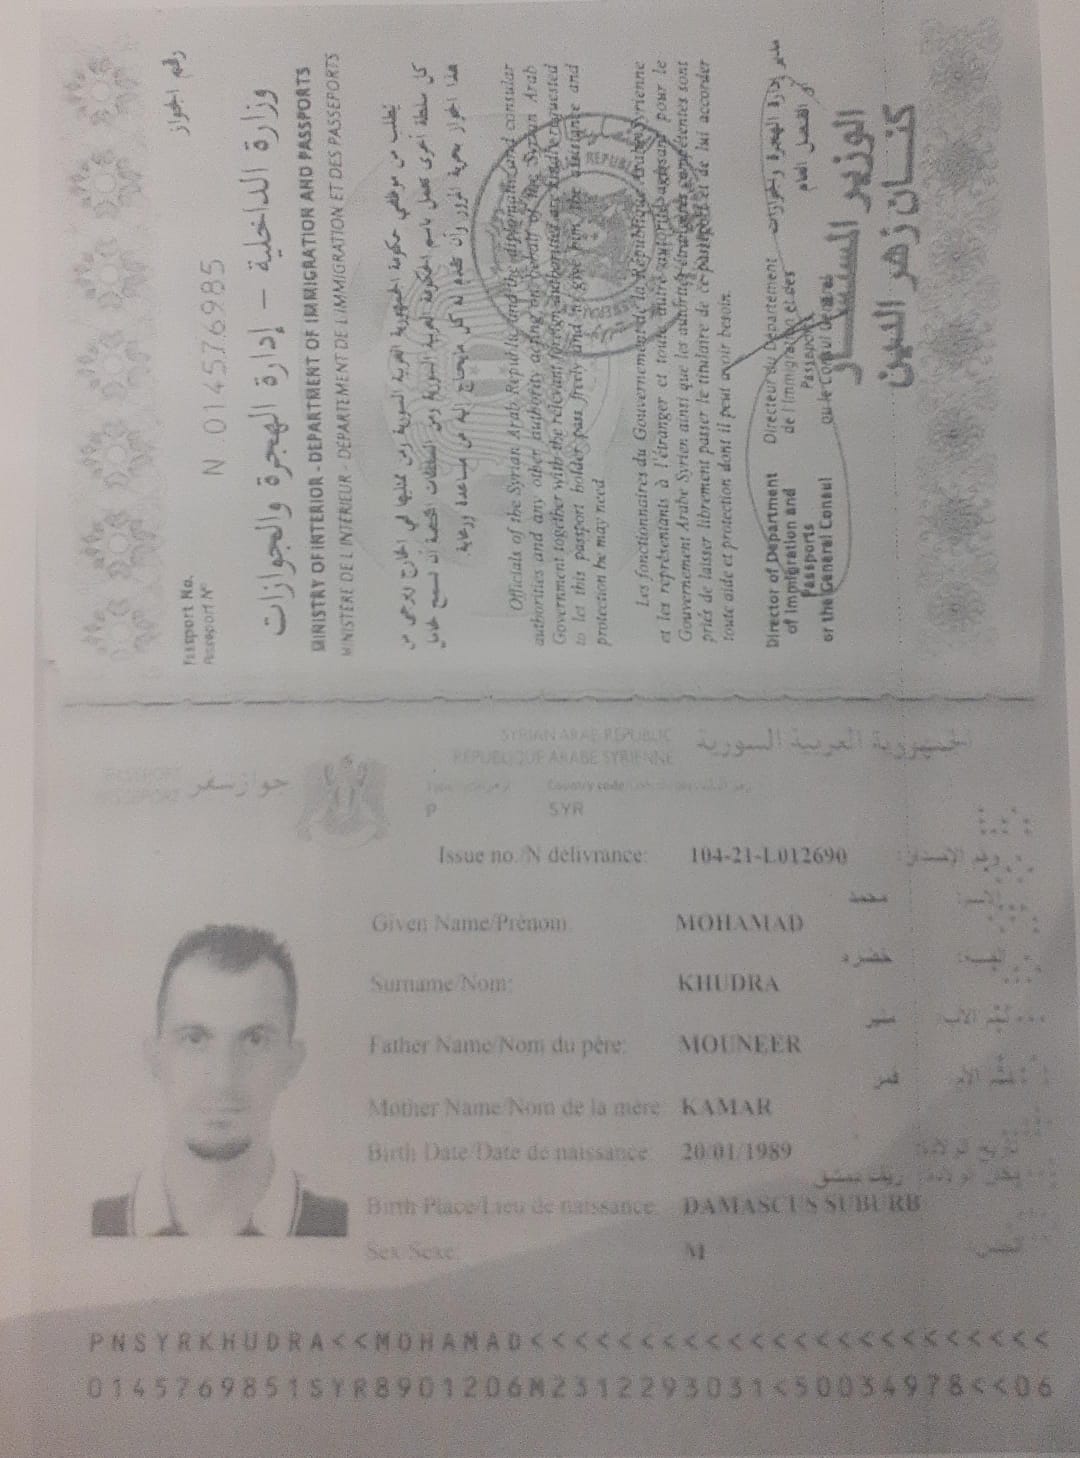 رقم الجواز
N 014576985
Passport No.
Passeport N°
وزارة الداخلية – إدارة الهجرة والجوازات
MINISTRY OF INTERIOR - DEPARTMENT OF IMMIGRATION AND PASSPORTS
MINISTERE DE L'INTERIEUR - DEPARTEMENT DE L'IMMIGRATION ET DES PASSEPORTS
Officials of the Syrian Arab Republic and the diplomatic and consular
authorities and any other authority acting on behalf of the Syrian Arab
Government together with the relevant foreign authorities are kindly requested
to let this passport holder pass freely and to give him the assistance and
protection he may need
Les fonctionnaires du Gouvernement de la République Arabe Syrienne
et les représentants à l'étranger et toute autre autorité agissant pour le
Gouvernement Arabe Syrien ainsi que les autorités étrangères compétentes sont
priés de laisser librement passer le titulaire de ce passeport et de lui accorder
toute aide et protection dont il peut avoir besoin.
Director of Department
of Immigration and
Passports
or the General Consul
Directeur du Département
de l'Immigration et des
Passeports
ou le Consul Général
مدير إدارة الهجرة والجوازات
أو القنصل العام
PASSPORT
PASSEPORT
جواز سفر
SYRIAN ARAB REPUBLIC
REPUBLIQUE ARABE SYRIENNE
الجمهورية العربية السورية
Country code
P SYR
Issue no./N délivrance: 104-21-L012690 رقم الإصدار:
Given Name/Prénom: MOHAMAD محمد الاسم:
Surname/Nom: KHUDRA خضره النسبة:
Father Name/Nom du père: MOUNEER منير اسم الأب:
Mother Name/Nom de la mère KAMAR قمر اسم الأم
Birth Date/Date de naissance: 20/01/1989 تاريخ الولادة:
Birth Place/Lieu de naissance: DAMASCUS SUBURB ريف دمشق مكان الولادة:
Sex/Sexe: M الجنس:
PNSYRKHUDRA<<MOHAMAD<<<<<<<<<<<<<<<<<<<<<<<<
0145769851SYR8901206M2312293031<50034978<<06